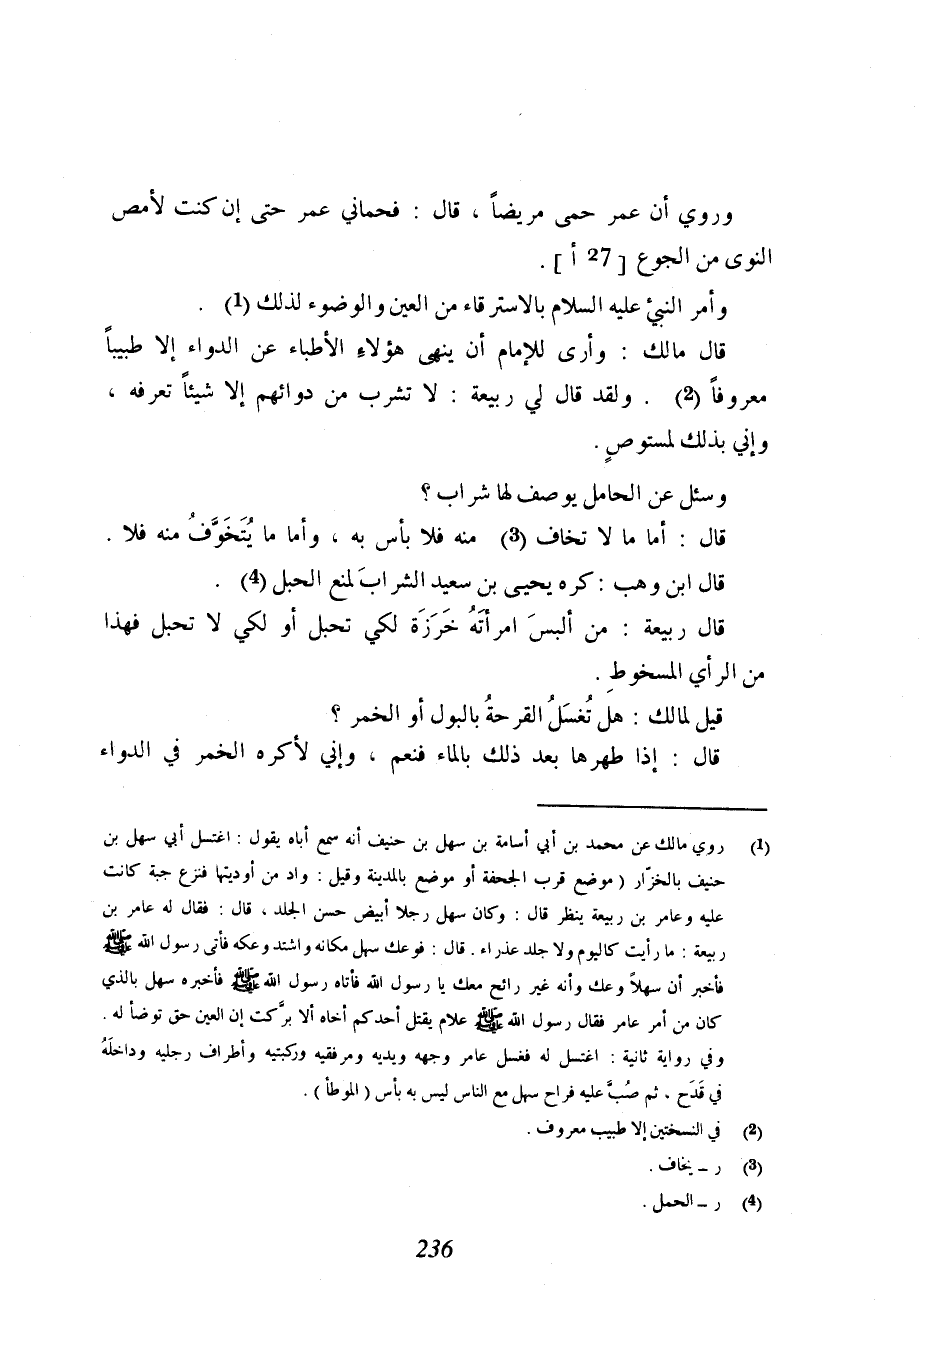 وروي أن عمر حمى مريضاً ، قال : فحماني عمر حتى إن كنت لأمص
النوى من الجوع [ 27 أ ] .
وأمر النبيُّ عليه السلام بالاسترقاء من العين والوضوء لذلك (1) .
قال مالك : وأرى للإمام أن ينهى هؤلاءِ الأطباء عن الدواء إلا طبيباً
معروفاً (2) . ولقد قال لي ربيعة : لا تشرب من دوائهم إلا شيئاً تعرفه ،
وإني بذلك لمستوصٍ .
وسئل عن الحامل يوصف لها شراب ؟
قال : أما ما لا تخاف (3) منه فلا بأس به ، وأما ما يُتَخَوَّفُ منه فلا .
قال ابن وهب : كره يحيى بن سعيد الشرابَ لمنع الحبل (4) .
قال ربيعة : من ألبسَ امرأتَهُ خَرَزَة لكي تحبل أو لكي لا تحبل فهذا
من الرأي المسخوطِ .
قيل لمالك : هل تُغسَلُ القرحةُ بالبول أو الخمر ؟
قال : إذا طهرها بعد ذلك بالماء فنعم ، وإني لأكره الخمر في الدواء
(1) روي مالك عن محمد بن أبي أسامة بن سهل بن حنيف أنه سمع أباه يقول : اغتسل أبي سهل بن
حنيف بالخزّار ( موضع قرب الجحفة أو موضع بالمدينة وقيل : واد من أوديتها فنزع جبة كانت
عليه وعامر بن ربيعة ينظر قال : وكان سهل رجلا أبيض حسن الجلد ، قال : فقال له عامر بن
ربيعة : ما رأيت كاليوم ولا جلد عذراء . قال : فوعك سهل مكانه واشتد وعكه فأتى رسول الله ﷺ
فأخبر أن سهلاً وعك وأنه غير رائح معك يا رسول الله فأتاه رسول الله ﷺ فأخبره سهل بالذي
كان من أمر عامر فقال رسول الله ﷺ علام يقتل أحدكم أخاه ألا برَّكت إن العين حق توضأ له .
وفي رواية ثانية : اغتسل له فغسل عامر وجهه ويديه ومرفقيه وركبتيه وأطراف رجليه وداخلَهُ
في قَدَح ، ثم صُبَّ عليه فراح سهل مع الناس ليس به بأس ( الموطأ ) .
(2) في النسختين إلا طبيب معروف .
(3) ر ــ يخاف .
(4) ر ــ الحمل .
236